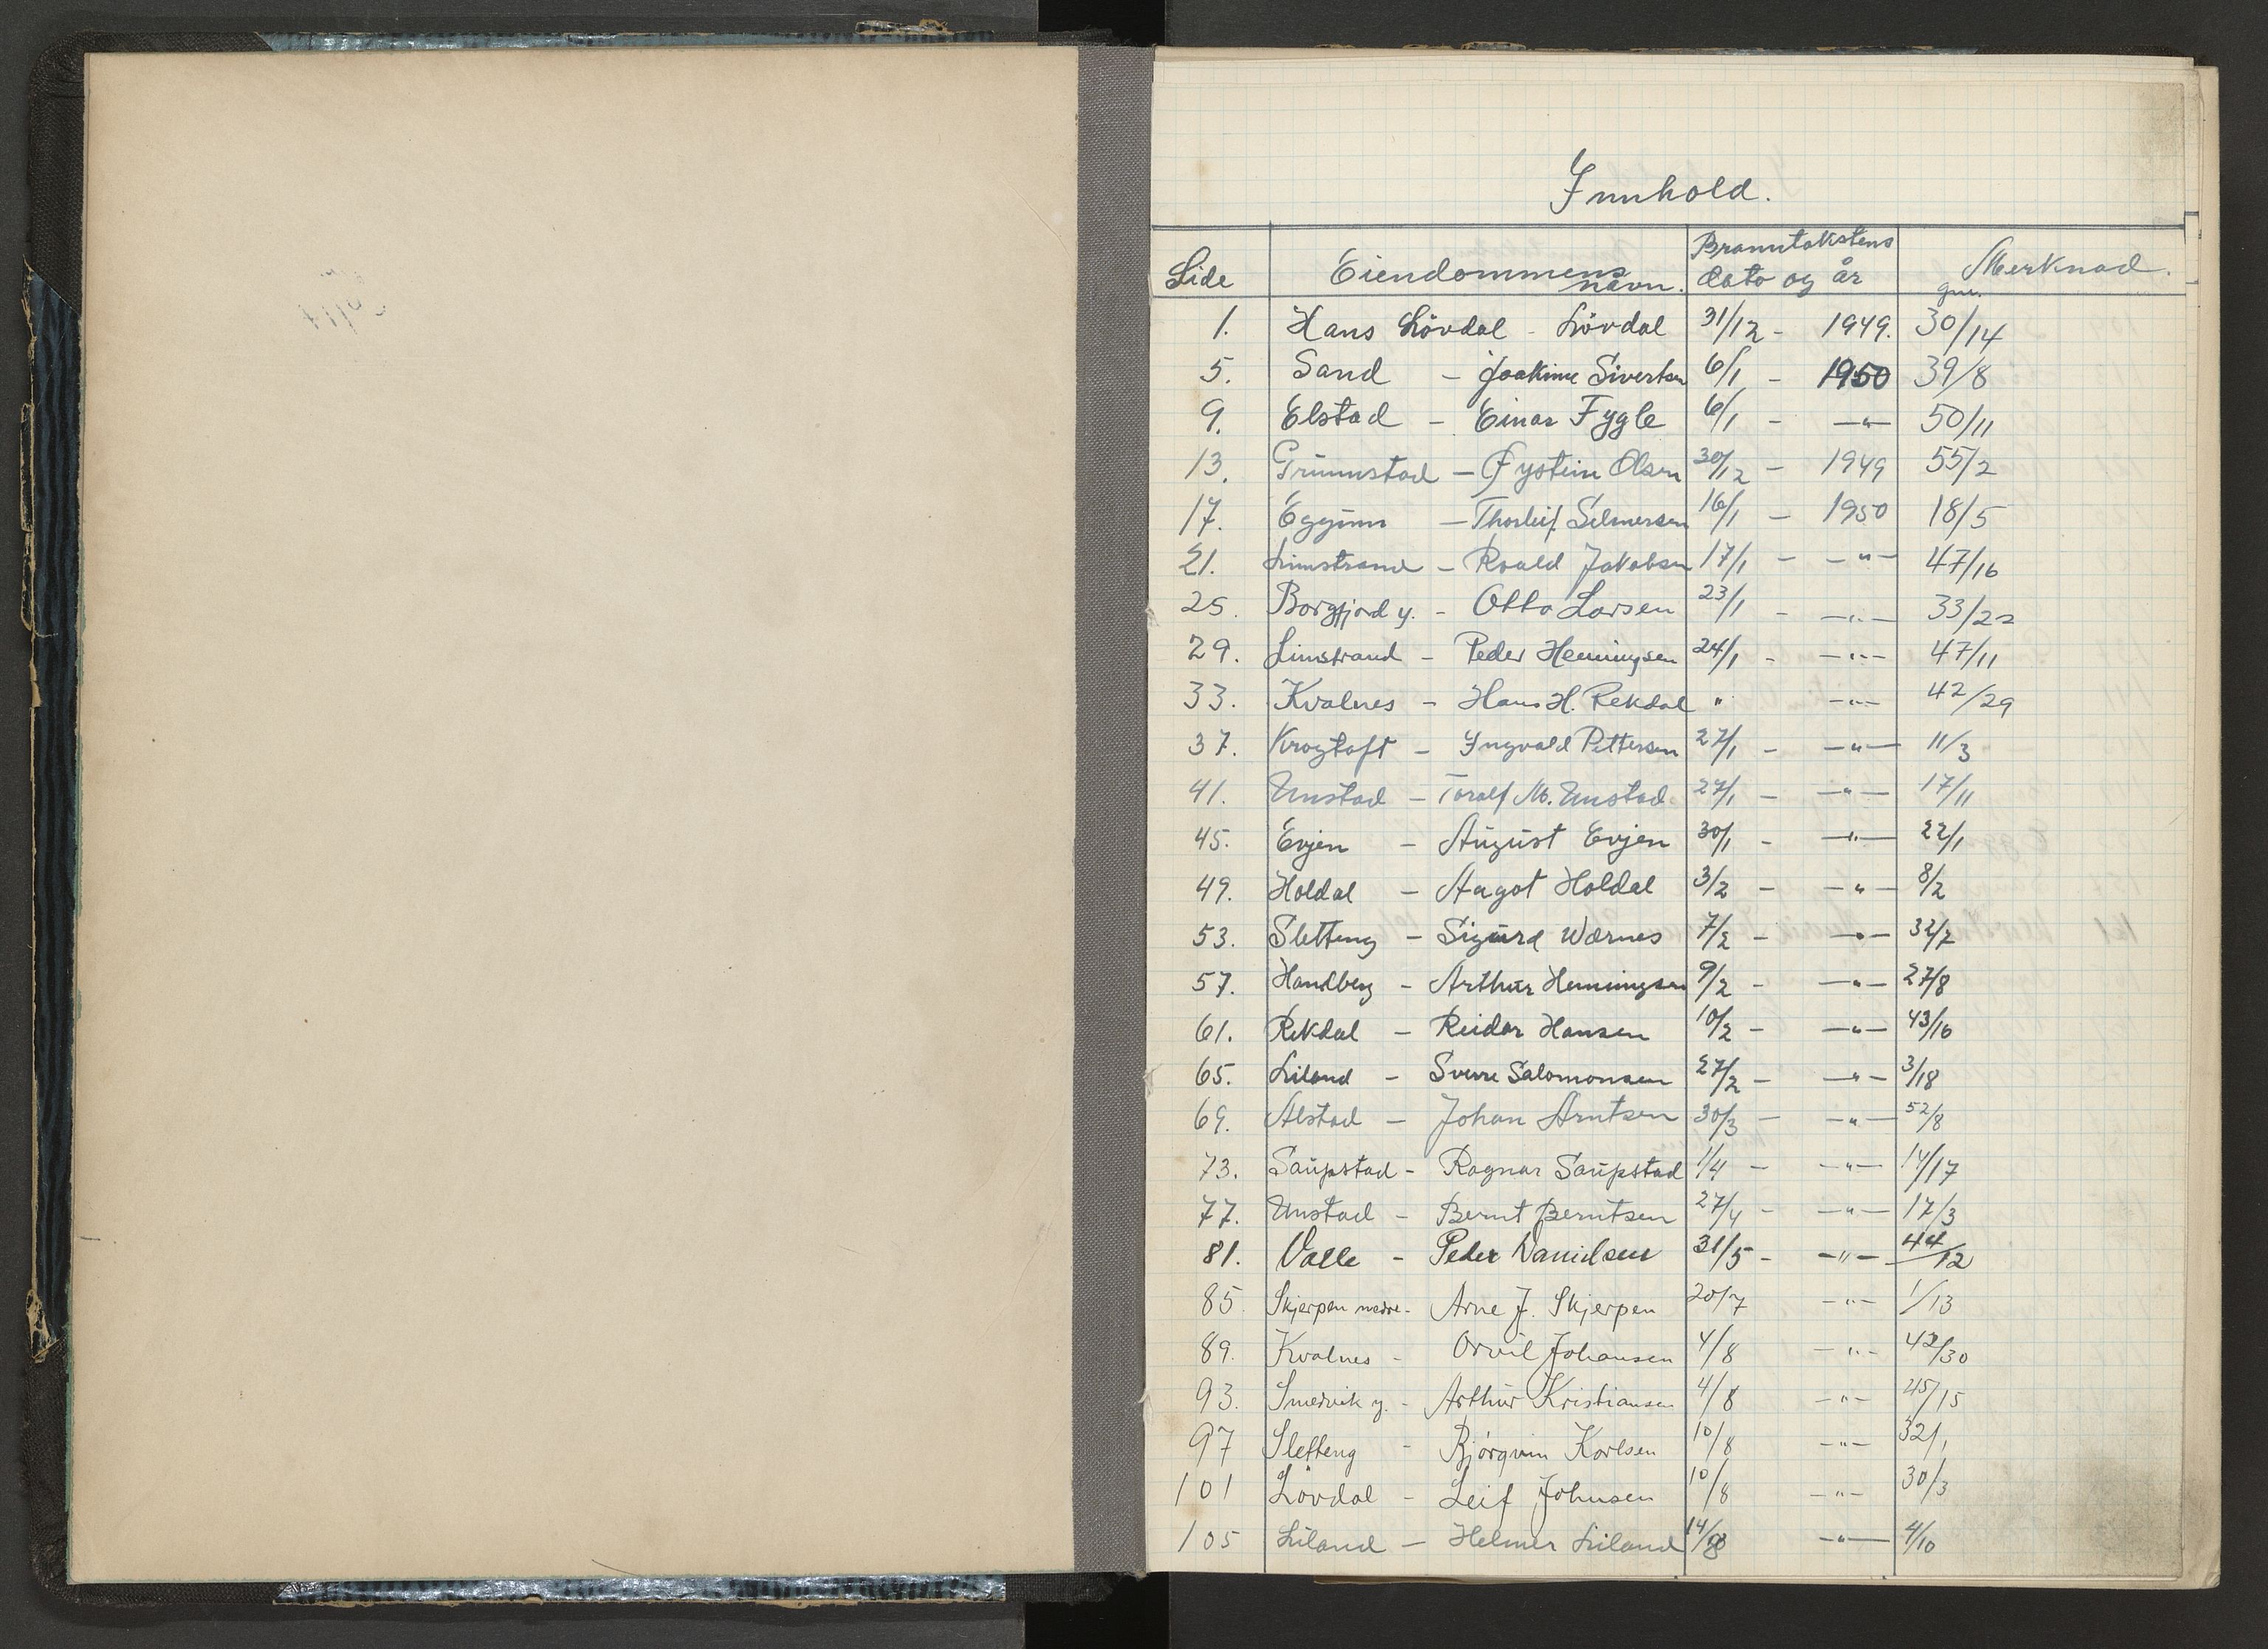 Innhold.
Side Eiendommens navn. Branntakstens dato og år Merknad. gnr.
1. Hans Lövdal - Lövdal 31/12 - 1949. 30/14
5. Sand - Joakime Sivertsen 6/1 - 1950 39/8
9. Elstad - Einar Fygle 6/1 - —"— 50/11
13. Grunnstad - Øystein Olsen 30/12 - 1949 55/2
17. Eggum - Thorleif Selmersen 16/1 - 1950 18/5
21. Limstrand - Roald Jakobsen 17/1 - —"— 47/16
25. Borgfjord y. - Otto Larsen 23/1 - —"— 33/22
29. Limstrand - Peder Henningsen 24/1 - —"— 47/11
33. Kvalnes - Hans H. Rekdal " —"— 42/29
37. Krogtoft - Yngvald Pettersen 27/1 - —"— 11/3
41. Unstad - Toralf M. Unstad 27/1 - —"— 17/11
45. Evjen - August Evjen 30/1 - —"— 22/1
49. Holdal - Aagot Holdal 3/2 - —"— 8/2
53. Sletteng - Sigurd Wærnes 7/2 - —"— 32/2
57. Handberg - Arthur Henningsen 9/2 - —"— 27/8
61. Rekdal - Reidar Hansen 10/2 - —"— 43/10
65. Liland - Sverre Salomonsen 27/2 - —"— 3/18
69. Alstad - Johan Arntsen 30/3 - —"— 52/8
73. Saupstad - Ragnar Saupstad 1/4 - —"— 14/17
77. Unstad - Bernt Berntsen 27/4 - —"— 17/3
81. Valle - Peder Danielsen 31/5 - —"— 44/12
85. Skjerpen nedre - Arne J. Skjerpen 20/7 —"— 1/13
89. Kvalnes - Orvil Johansen 4/8 —"— 42/30
93. Smedvik y. - Arthur Kristiansen 4/8 —"— 45/15
97 Sletteng - Bjørgvin Karlsen 10/8 —"— 32/1
101 Lövdal - Leif Johnsen 10/8 —"— 30/3
105 Liland - Helmer Liland 14/8 —"— 4/10